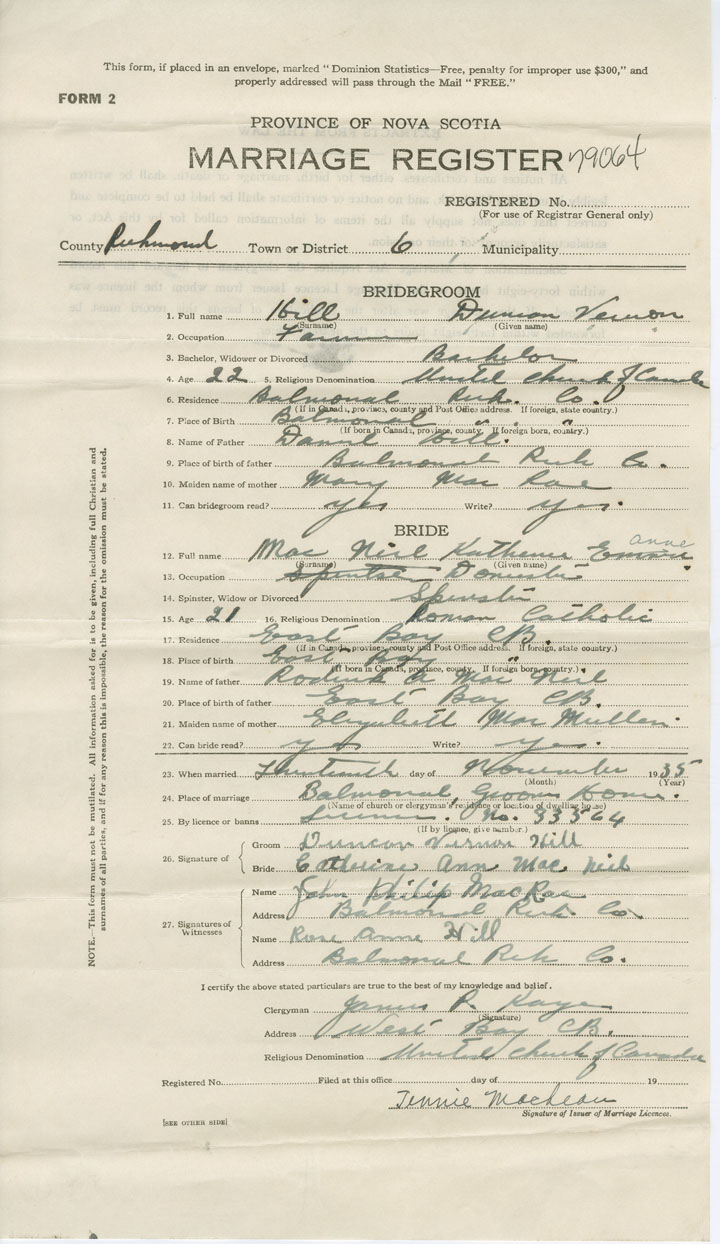 This form, if placed in an envelope, marked "Dominion Statistics—Free, penalty for improper use $300," and
properly addressed will pass through the Mail "FREE."
FORM 2
PROVINCE OF NOVA SCOTIA
MARRIAGE REGISTER 79064
REGISTERED No.
(For use of Registrar General only)
County Richmond Town or District 6 Municipality
BRIDEGROOM
1. Full name Hill Duncan Vernon
(Surname) (Given name)
2. Occupation Farmer
3. Bachelor, Widower or Divorced Bachelor
4. Age 22 5. Religious Denomination United Church of Canada
6. Residence Balmonal Rich. Co.
(If in Canada, province, county and Post Office address. If foreign, state country.)
7. Place of Birth Balmonal " "
(If born in Canada, province, county. If foreign born, country.)
8. Name of Father Daniel Hill.
9. Place of birth of father Balmonal Rich Co.
10. Maiden name of mother Mary Mac Rae
11. Can bridegroom read? yes Write? yes.
BRIDE
anne
12. Full name Mac Neil Katherine Emma
(Surname) (Given name)
13. Occupation Spinster Domestic
14. Spinster, Widow or Divorced Spinster
15. Age 21 16. Religious Denomination Roman Catholic
17. Residence East Bay CB.
(If in Canada, province, county and Post Office address. If foreign, state country.)
18. Place of birth East Bay "
(If born in Canada, province, county. If foreign born, country.)
19. Name of father Roderick A Mac Neil
20. Place of birth of father East Bay CB.
21. Maiden name of mother Elizabeth Mac Mullen.
22. Can bride read? yes Write? yes.
23. When married day of November 1935
(Month) (Year)
24. Place of marriage Balmonal, Grooms Home.
(Name of church or clergyman's residence or location of dwelling house)
25. By licence or banns License. No. 33564
(If by licence, give number.)
26. Signature of
Groom Duncan Vernon Hill
Bride Catherine Ann Mac Neil
27. Signatures of Witnesses
Name John Philip MacRae
Address Balmonal Rich Co.
Name Rose Anne Hill
Address Balmonal Rich Co.
I certify the above stated particulars are true to the best of my knowledge and belief.
Clergyman James R. Kaye
(Signature)
Address West Bay CB.
Religious Denomination United Church of Canada
Registered No. Filed at this office day of 19
Tennie MacLean
Signature of Issuer of Marriage Licences.
[SEE OTHER SIDE]
NOTE.—This form must not be mutilated. All information asked for is to be given, including full Christian and
surnames of all parties, and if for any reason this is impossible, the reason for the omission must be stated.